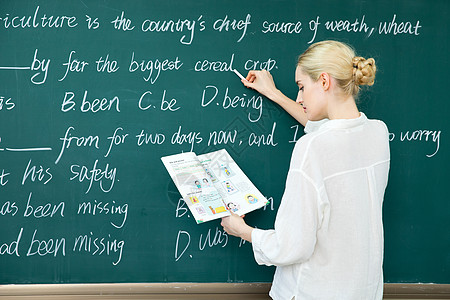 riculture is the country's chief source of weath, wheat
____ by far the biggest cereal crop.
s B.been C.be D.being
____ from for two days now, and I o worry
t his safely.
as been missing B
ad been missing D. Was